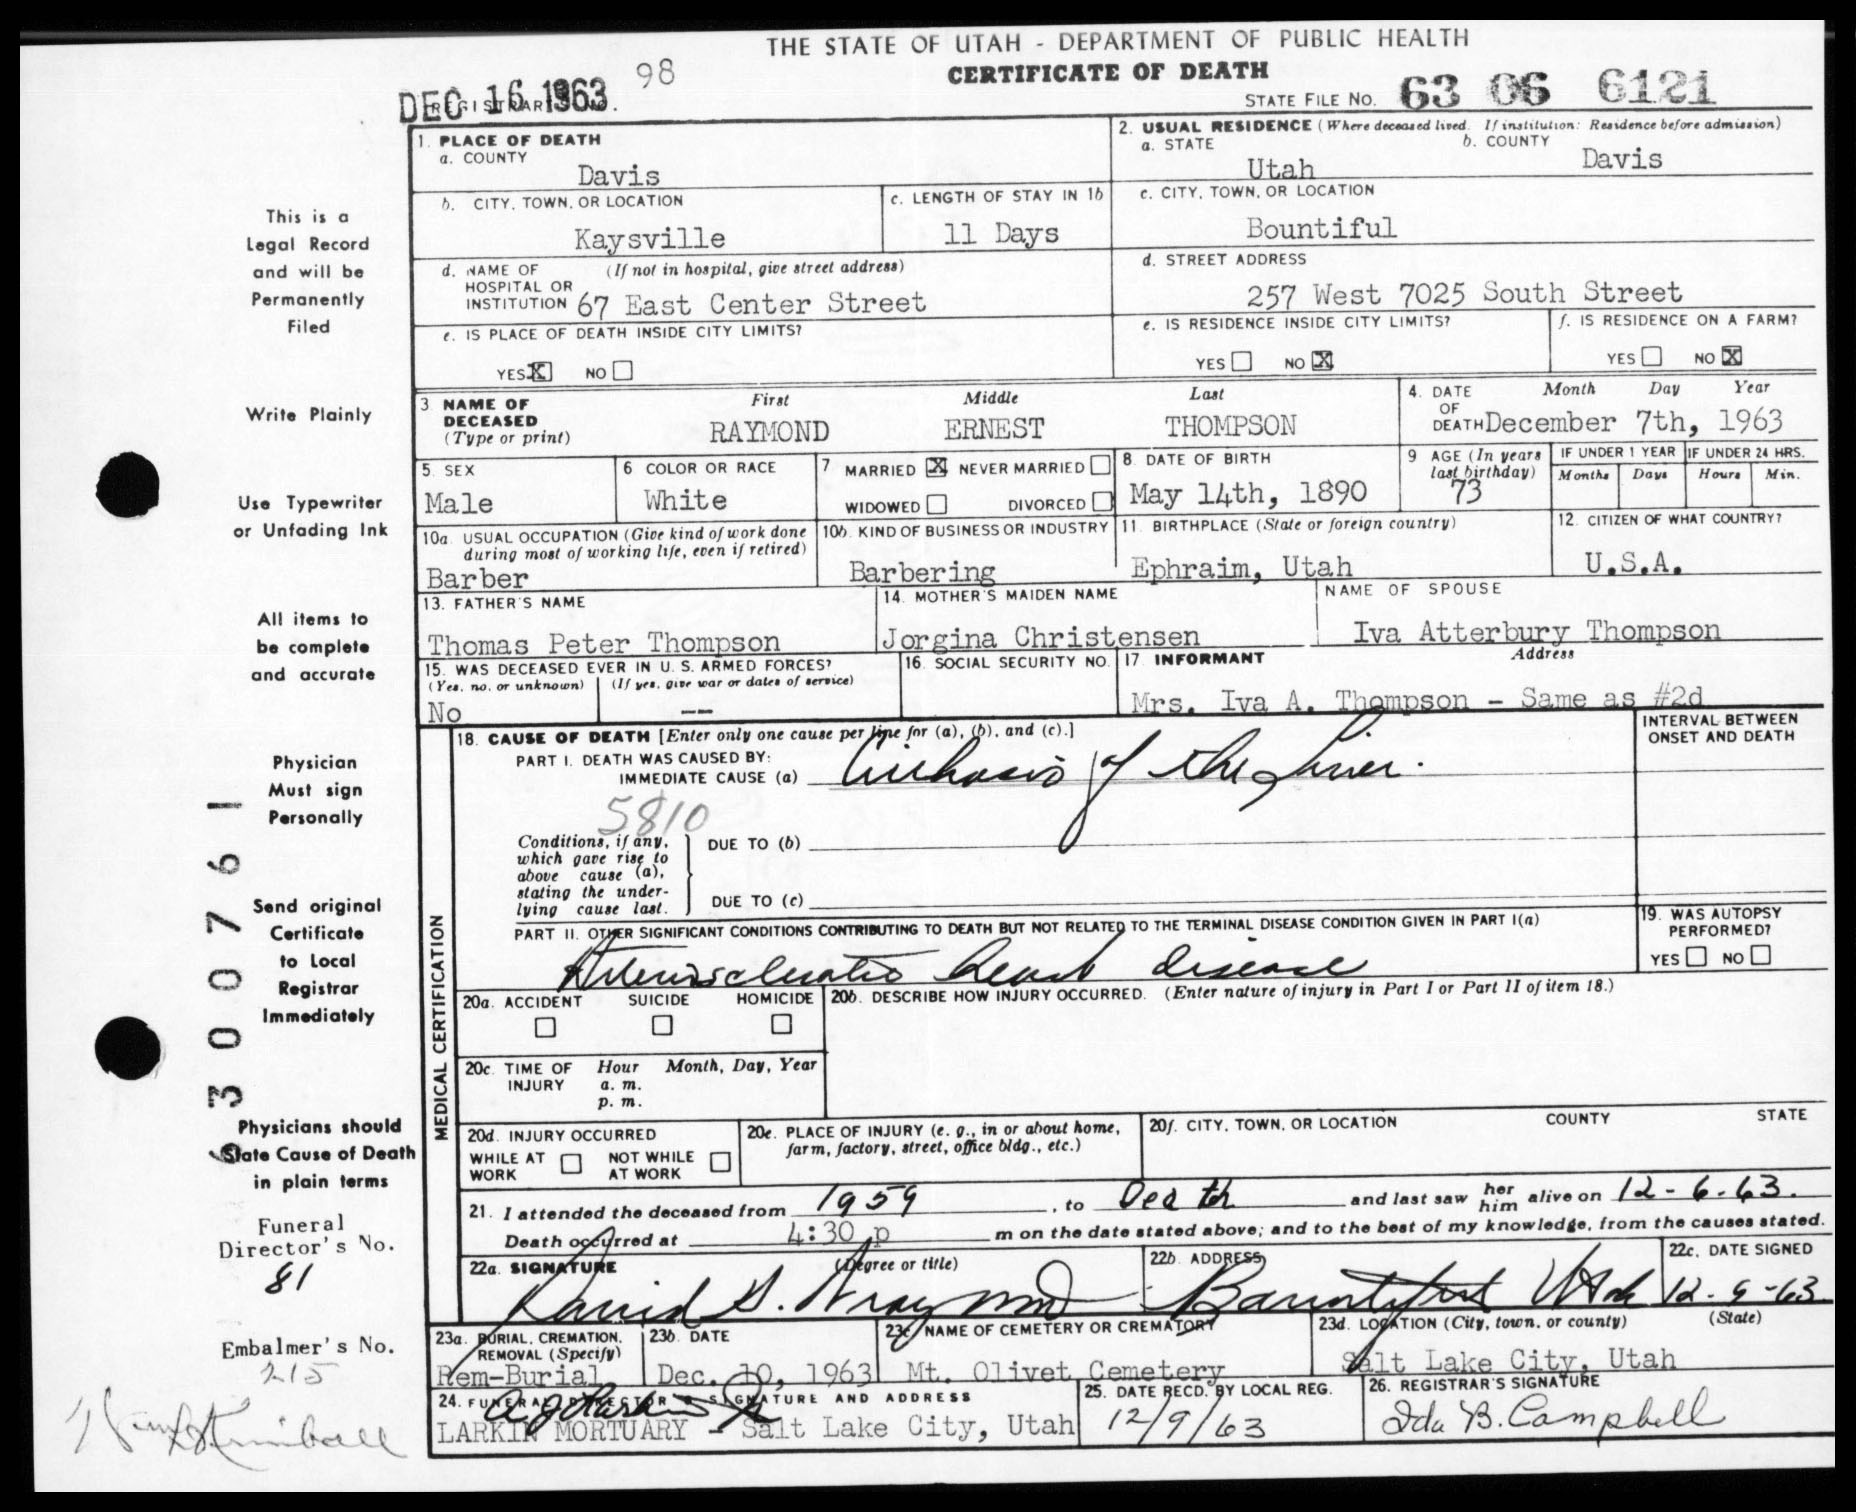 THE STATE OF UTAH - DEPARTMENT OF PUBLIC HEALTH
CERTIFICATE OF DEATH
DEC 16 1963
REGISTRAR'S NO.
98
STATE FILE No. 63 06 6121
1. PLACE OF DEATH
a. COUNTY
Davis
2. USUAL RESIDENCE (Where deceased lived. If institution: Residence before admission)
a. STATE
Utah
b. COUNTY
Davis
b. CITY, TOWN, OR LOCATION
Kaysville
c. LENGTH OF STAY IN 1b
11 Days
c. CITY, TOWN, OR LOCATION
Bountiful
d. NAME OF HOSPITAL OR INSTITUTION
(If not in hospital, give street address)
67 East Center Street
d. STREET ADDRESS
257 West 7025 South Street
e. IS PLACE OF DEATH INSIDE CITY LIMITS?
YES X NO
e. IS RESIDENCE INSIDE CITY LIMITS?
YES NO X
f. IS RESIDENCE ON A FARM?
YES NO X
3 NAME OF DECEASED (Type or print)
First Middle Last
RAYMOND ERNEST THOMPSON
4. DATE OF DEATH
Month Day Year
December 7th, 1963
5. SEX
Male
6 COLOR OR RACE
White
7 MARRIED X NEVER MARRIED
WIDOWED DIVORCED
8. DATE OF BIRTH
May 14th, 1890
9 AGE (In years last birthday)
73
IF UNDER 1 YEAR
Months Days
IF UNDER 24 HRS.
Hours Min.
10a. USUAL OCCUPATION (Give kind of work done during most of working life, even if retired)
Barber
10b. KIND OF BUSINESS OR INDUSTRY
Barbering
11. BIRTHPLACE (State or foreign country)
Ephraim, Utah
12. CITIZEN OF WHAT COUNTRY?
U.S.A.
13. FATHER'S NAME
Thomas Peter Thompson
14. MOTHER'S MAIDEN NAME
Jorgina Christensen
NAME OF SPOUSE
Iva Atterbury Thompson
15. WAS DECEASED EVER IN U. S. ARMED FORCES?
(Yes, no, or unknown) (If yes, give war or dates of service)
No --
16. SOCIAL SECURITY NO.
17. INFORMANT Address
Mrs. Iva A. Thompson - Same as #2d
18. CAUSE OF DEATH [Enter only one cause per line for (a), (b), and (c).]
INTERVAL BETWEEN ONSET AND DEATH
PART I. DEATH WAS CAUSED BY:
IMMEDIATE CAUSE (a) Cirrhosis of the Liver.
5810
Conditions, if any, which gave rise to above cause (a), stating the underlying cause last.
DUE TO (b)
DUE TO (c)
PART II. OTHER SIGNIFICANT CONDITIONS CONTRIBUTING TO DEATH BUT NOT RELATED TO THE TERMINAL DISEASE CONDITION GIVEN IN PART I(a)
Arteriosclerotic heart disease
19. WAS AUTOPSY PERFORMED?
YES NO
MEDICAL CERTIFICATION
20a. ACCIDENT SUICIDE HOMICIDE
20b. DESCRIBE HOW INJURY OCCURRED. (Enter nature of injury in Part I or Part II of item 18.)
20c. TIME OF INJURY
Hour Month, Day, Year
a. m.
p. m.
20d. INJURY OCCURRED
WHILE AT WORK NOT WHILE AT WORK
20e. PLACE OF INJURY (e. g., in or about home, farm, factory, street, office bldg., etc.)
20f. CITY, TOWN, OR LOCATION COUNTY STATE
21. I attended the deceased from 1959, to Death and last saw her him alive on 12-6-63.
Death occurred at 4:30 p m on the date stated above; and to the best of my knowledge, from the causes stated.
22a. SIGNATURE (Degree or title)
David G. Wray MD
22b. ADDRESS
Bountiful Utah
22c. DATE SIGNED
12-9-63
23a. BURIAL, CREMATION, REMOVAL (Specify)
Rem-Burial
23b. DATE
Dec. 10, 1963
23c. NAME OF CEMETERY OR CREMATORY
Mt. Olivet Cemetery
23d. LOCATION (City, town, or county) (State)
Salt Lake City, Utah
24. FUNERAL DIRECTOR'S SIGNATURE AND ADDRESS
LARKIN MORTUARY - Salt Lake City, Utah
25. DATE RECD. BY LOCAL REG.
12/9/63
26. REGISTRAR'S SIGNATURE
Ida B. Campbell
This is a
Legal Record
and will be
Permanently
Filed
Write Plainly
Use Typewriter
or Unfading Ink
All items to
be complete
and accurate
Physician
Must sign
Personally
Send original
Certificate
to Local
Registrar
Immediately
Physicians should
State Cause of Death
in plain terms
Funeral
Director's No.
81
Embalmer's No.
215
Kimball